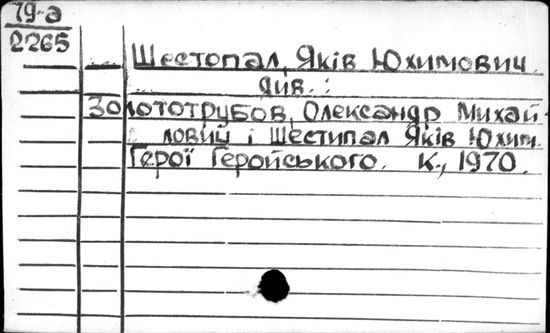 79-а
2265
Шестопал, Яків Юхимович
див.:
Золототрубов, Олександр Михай-
лович і Шестипал Яків Юхим.
Герої Геройського. К., 1970.